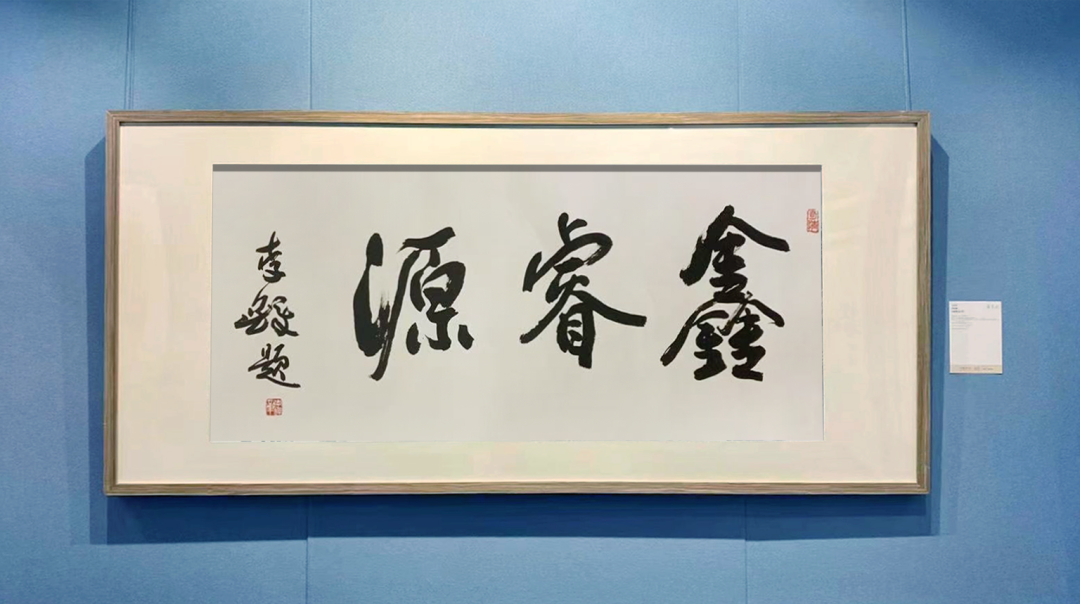 鑫睿源
李铎题